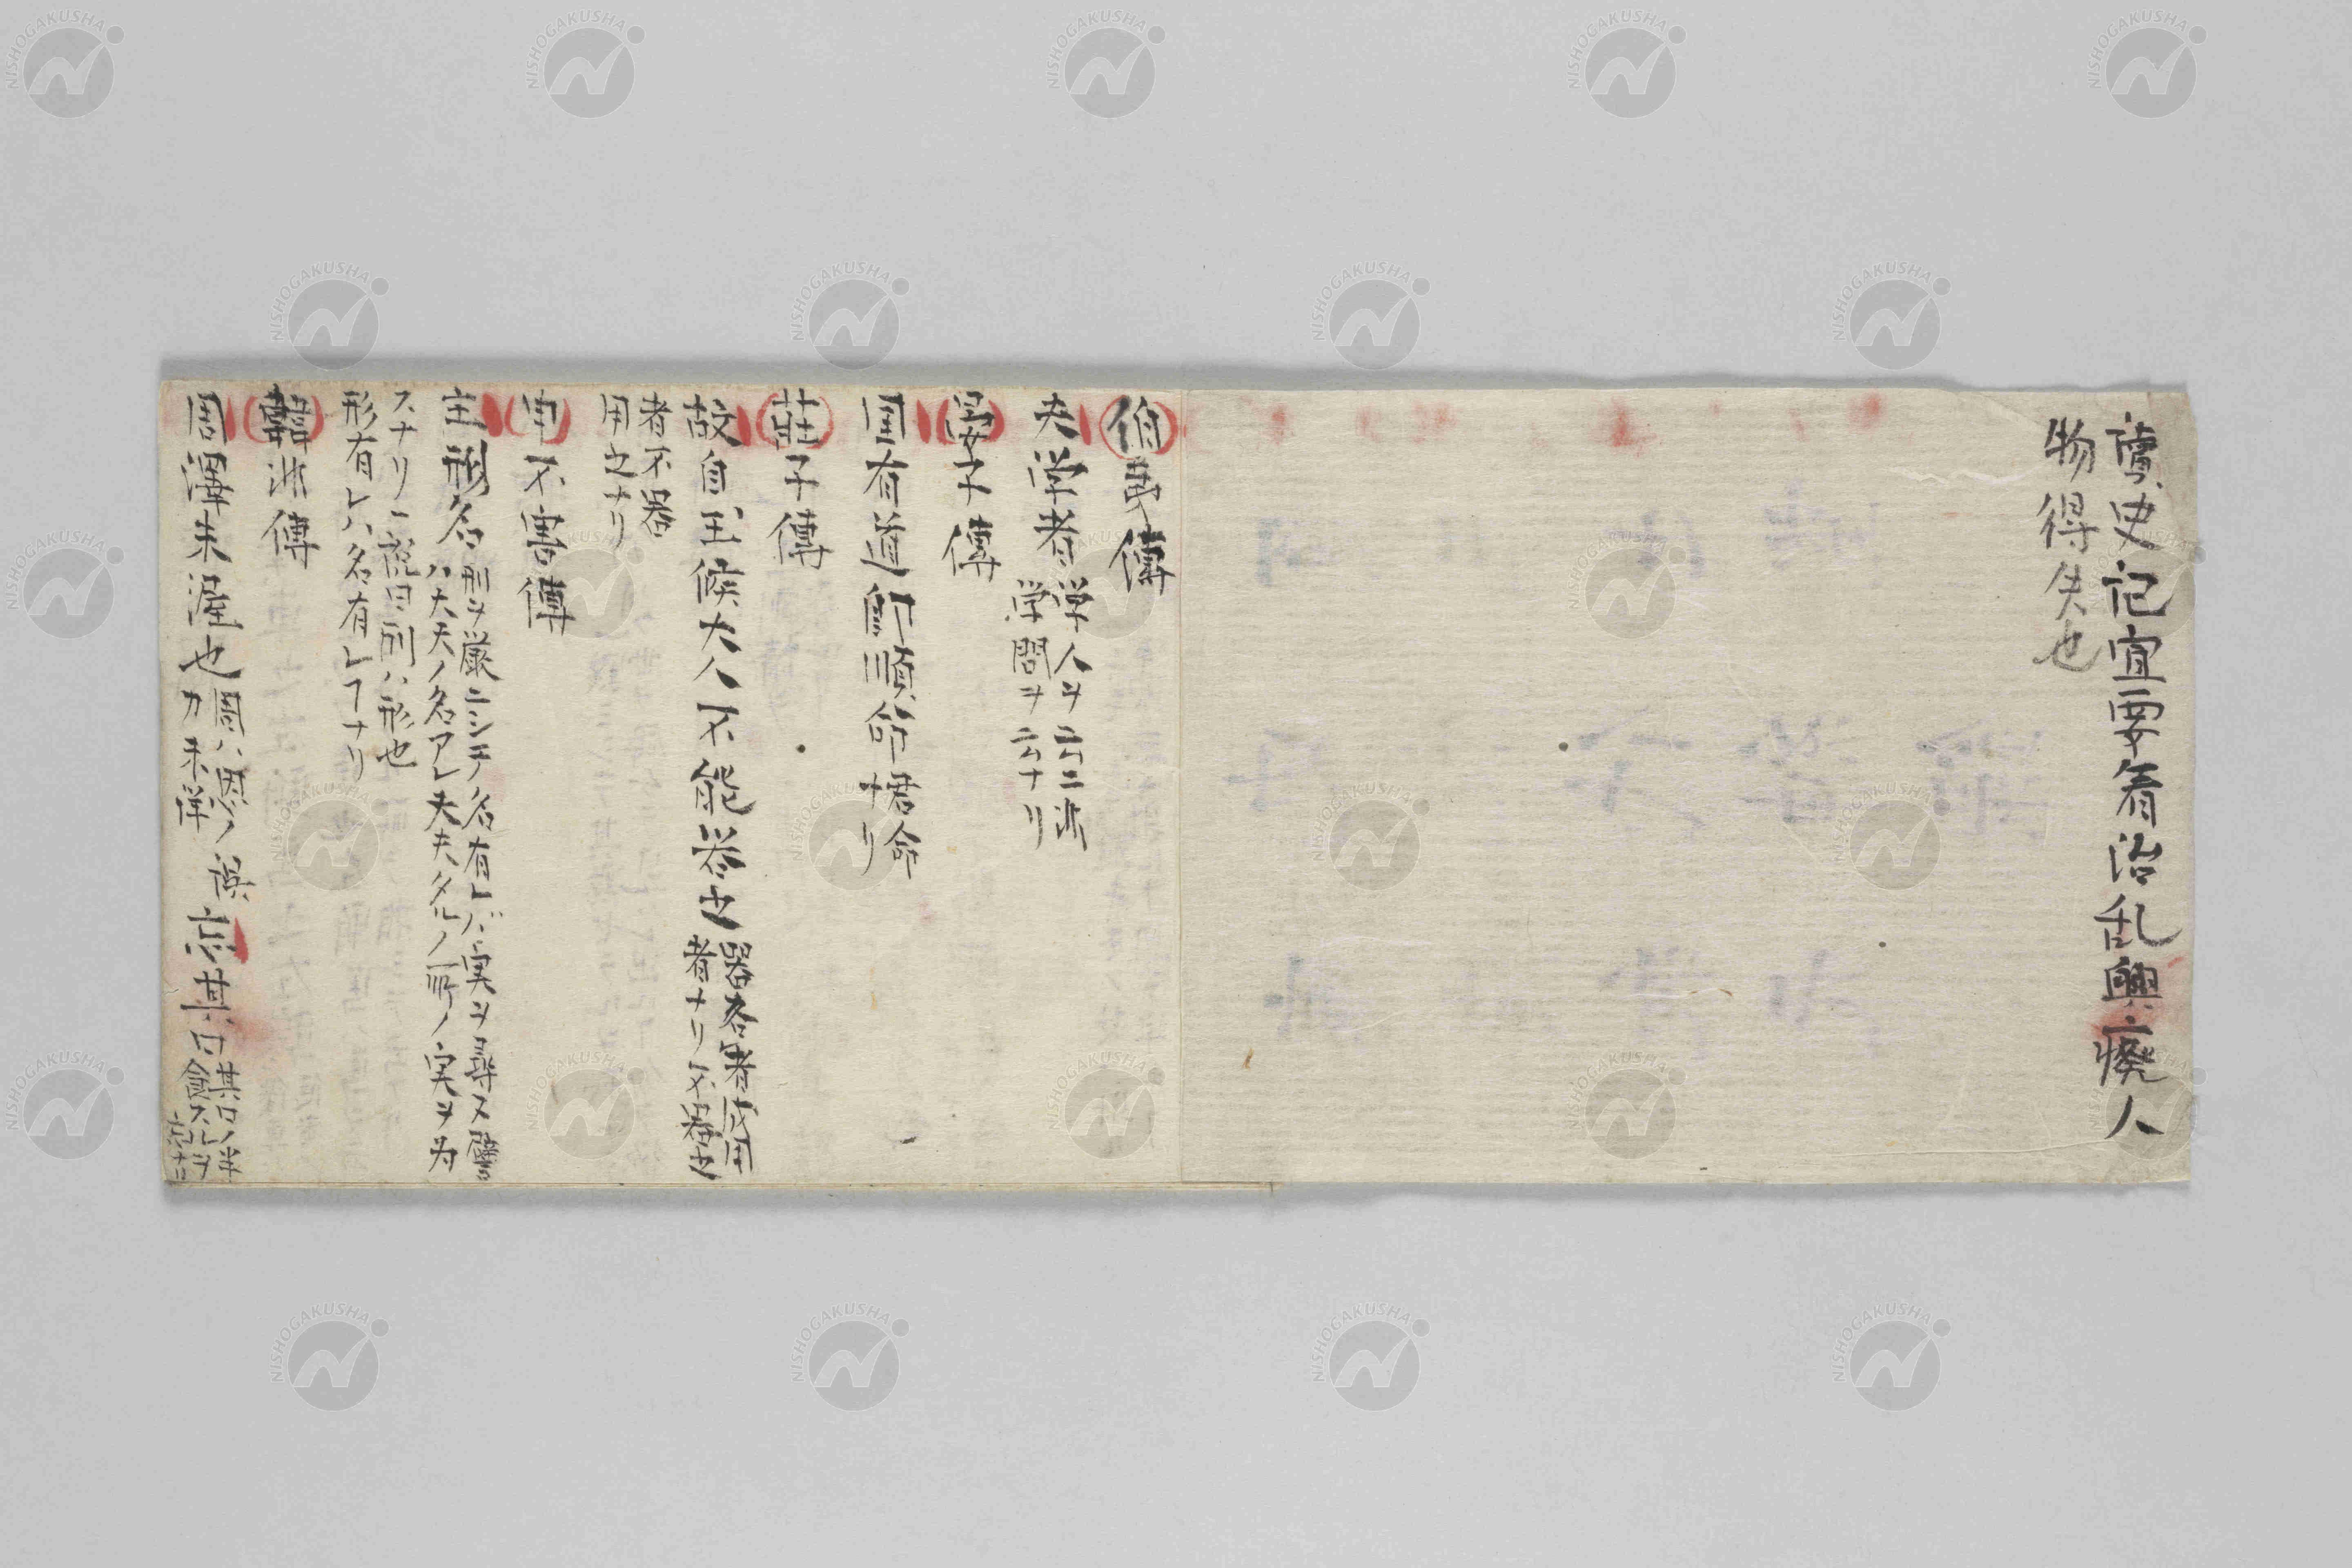 讀史記宜要看治乱興癈人
物得失也
伯夷傳
夫学者 学人ヲ云ニ非
学問ヲ云ナリ
晏子傳
国有道即順命 君命
ナリ
莊子傳
故自王侯大人不能器之 器
者ナリ 不器之
者不器
用之ナリ
申不害傳
主刑名 刑ヲ厳ニシテ名有レバ実ヲ尋ヌ譬
ハ大夫ノ名アレ夫夫タルノ所ノ実ヲ为
スナリ一説曰刑ハ形也
形有レハ名有レトナリ
韓非傳
周澤未渥也 周ハ恩ノ誤
カ未詳
忘其口